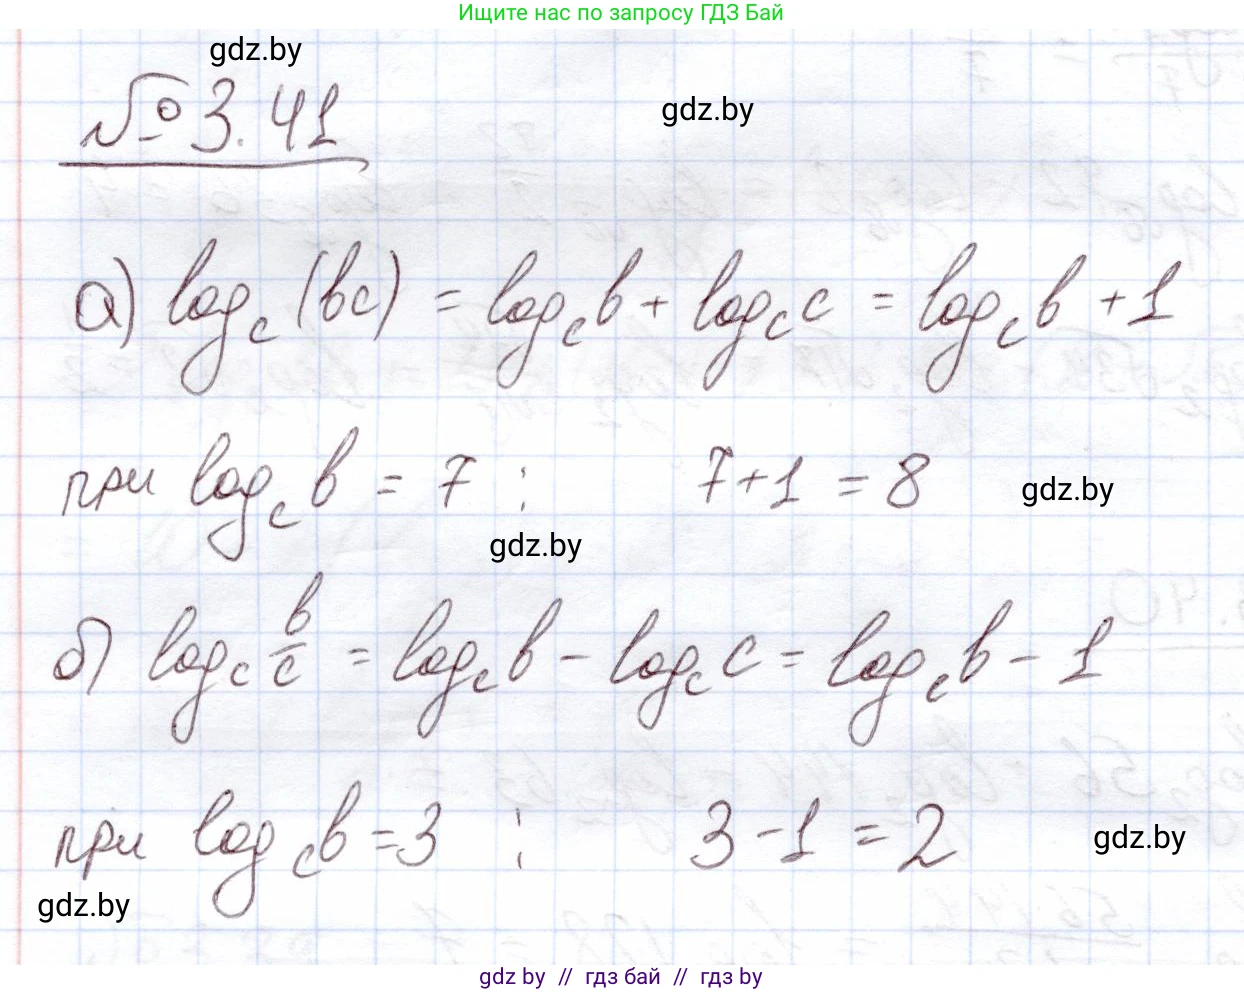 Ищите нас по запросу ГДЗ Бай
gdz.by
№ 3.41
gdz.by
а) log_c (bc) = log_c b + log_c c = log_c b + 1
при log_c b = 7 : 7+1 = 8
gdz.by
gdz.by
б) log_c b/c = log_c b - log_c c = log_c b - 1
при log_c b = 3 : 3 - 1 = 2
gdz.by
gdz.by
gdz by // гдз бай // гдз by